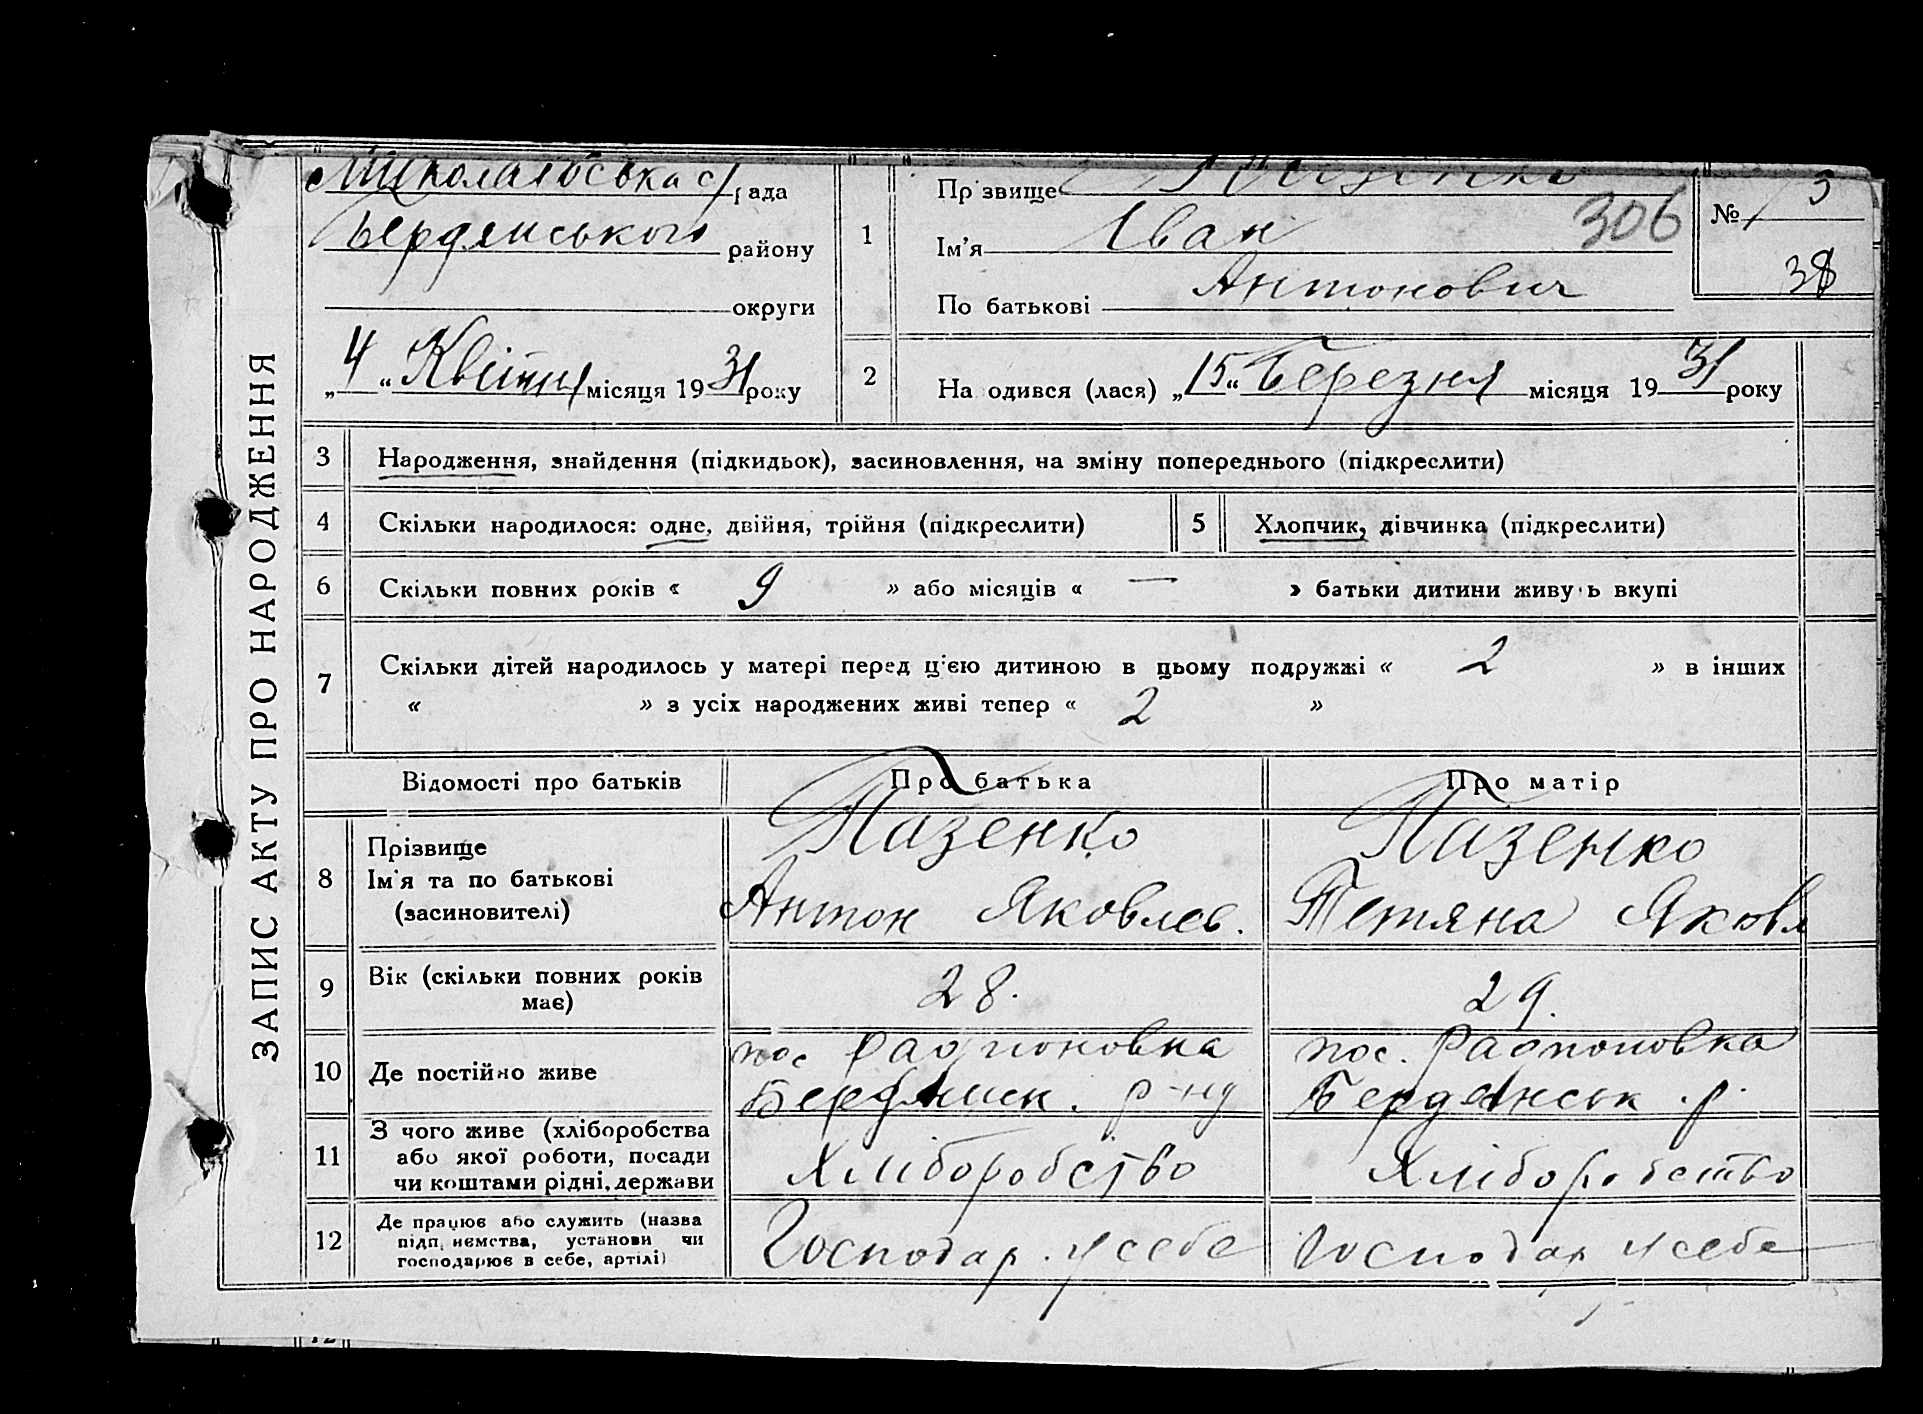 ЗАПИС АКТУ ПРО НАРОДЖЕННЯ
Миколаївська с/рада
Бердянського району
округи
„4“ Квітня місяця 1931 року
1
Прізвище
Ім'я Іван
По батькові Антонович
306
№ 3
38
2
Народився (лася) „15“ Березня місяця 1931 року
3 Народження, знайдення (підкидьок), засиновлення, на зміну попереднього (підкреслити)
4 Скільки народилося: одне, двійня, трійня (підкреслити)
5 Хлопчик, дівчинка (підкреслити)
6 Скільки повних років « 9 » або місяців « — » батьки дитини живуть вкупі
7 Скільки дітей народилось у матері перед цією дитиною в цьому подружжі « 2 » в інших
« » з усіх народжених живі тепер « 2 »
Відомості про батьків Про батька Про матір
8 Прізвище
Ім'я та по батькові
(засиновителі)
Пазенко
Антон Яковлев.
Пазенко
Тетяна Яковл
9 Вік (скільки повних років
має)
28.
29.
10 Де постійно живе
пос Радіоновка
Бердянск. р-ну
пос. Радіоновка
Бердянськ. р.
11 З чого живе (хліборобства
або якої роботи, посади
чи коштами рідні, держави
Хліборобство
Хліборобство
12 Де працює або служить (назва
підприємства, установи чи
господарює в себе, артілі)
Господар. у себе
Господар у себе